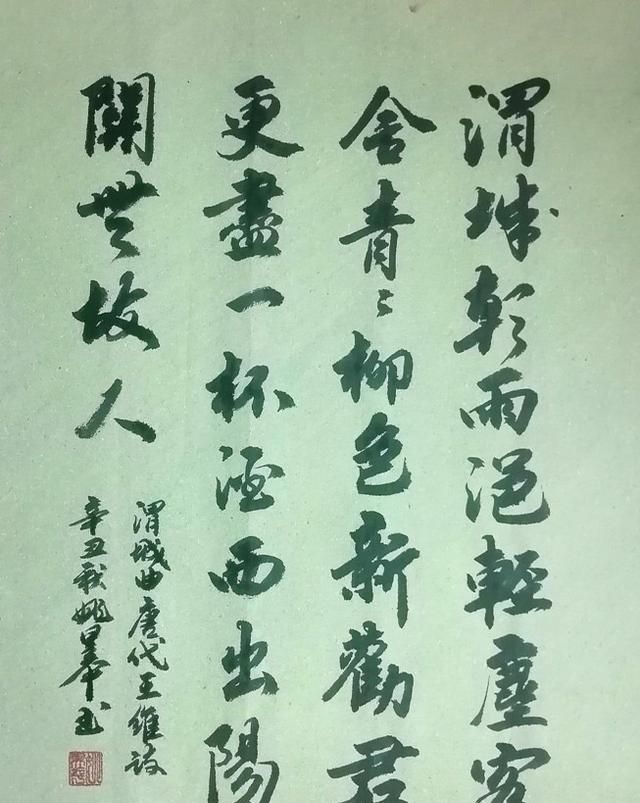 渭城朝雨浥輕塵客
舍青々柳色新勸君
更盡一杯酒西出陽
關無故人
渭城曲唐代王維詩
辛丑秋姚书